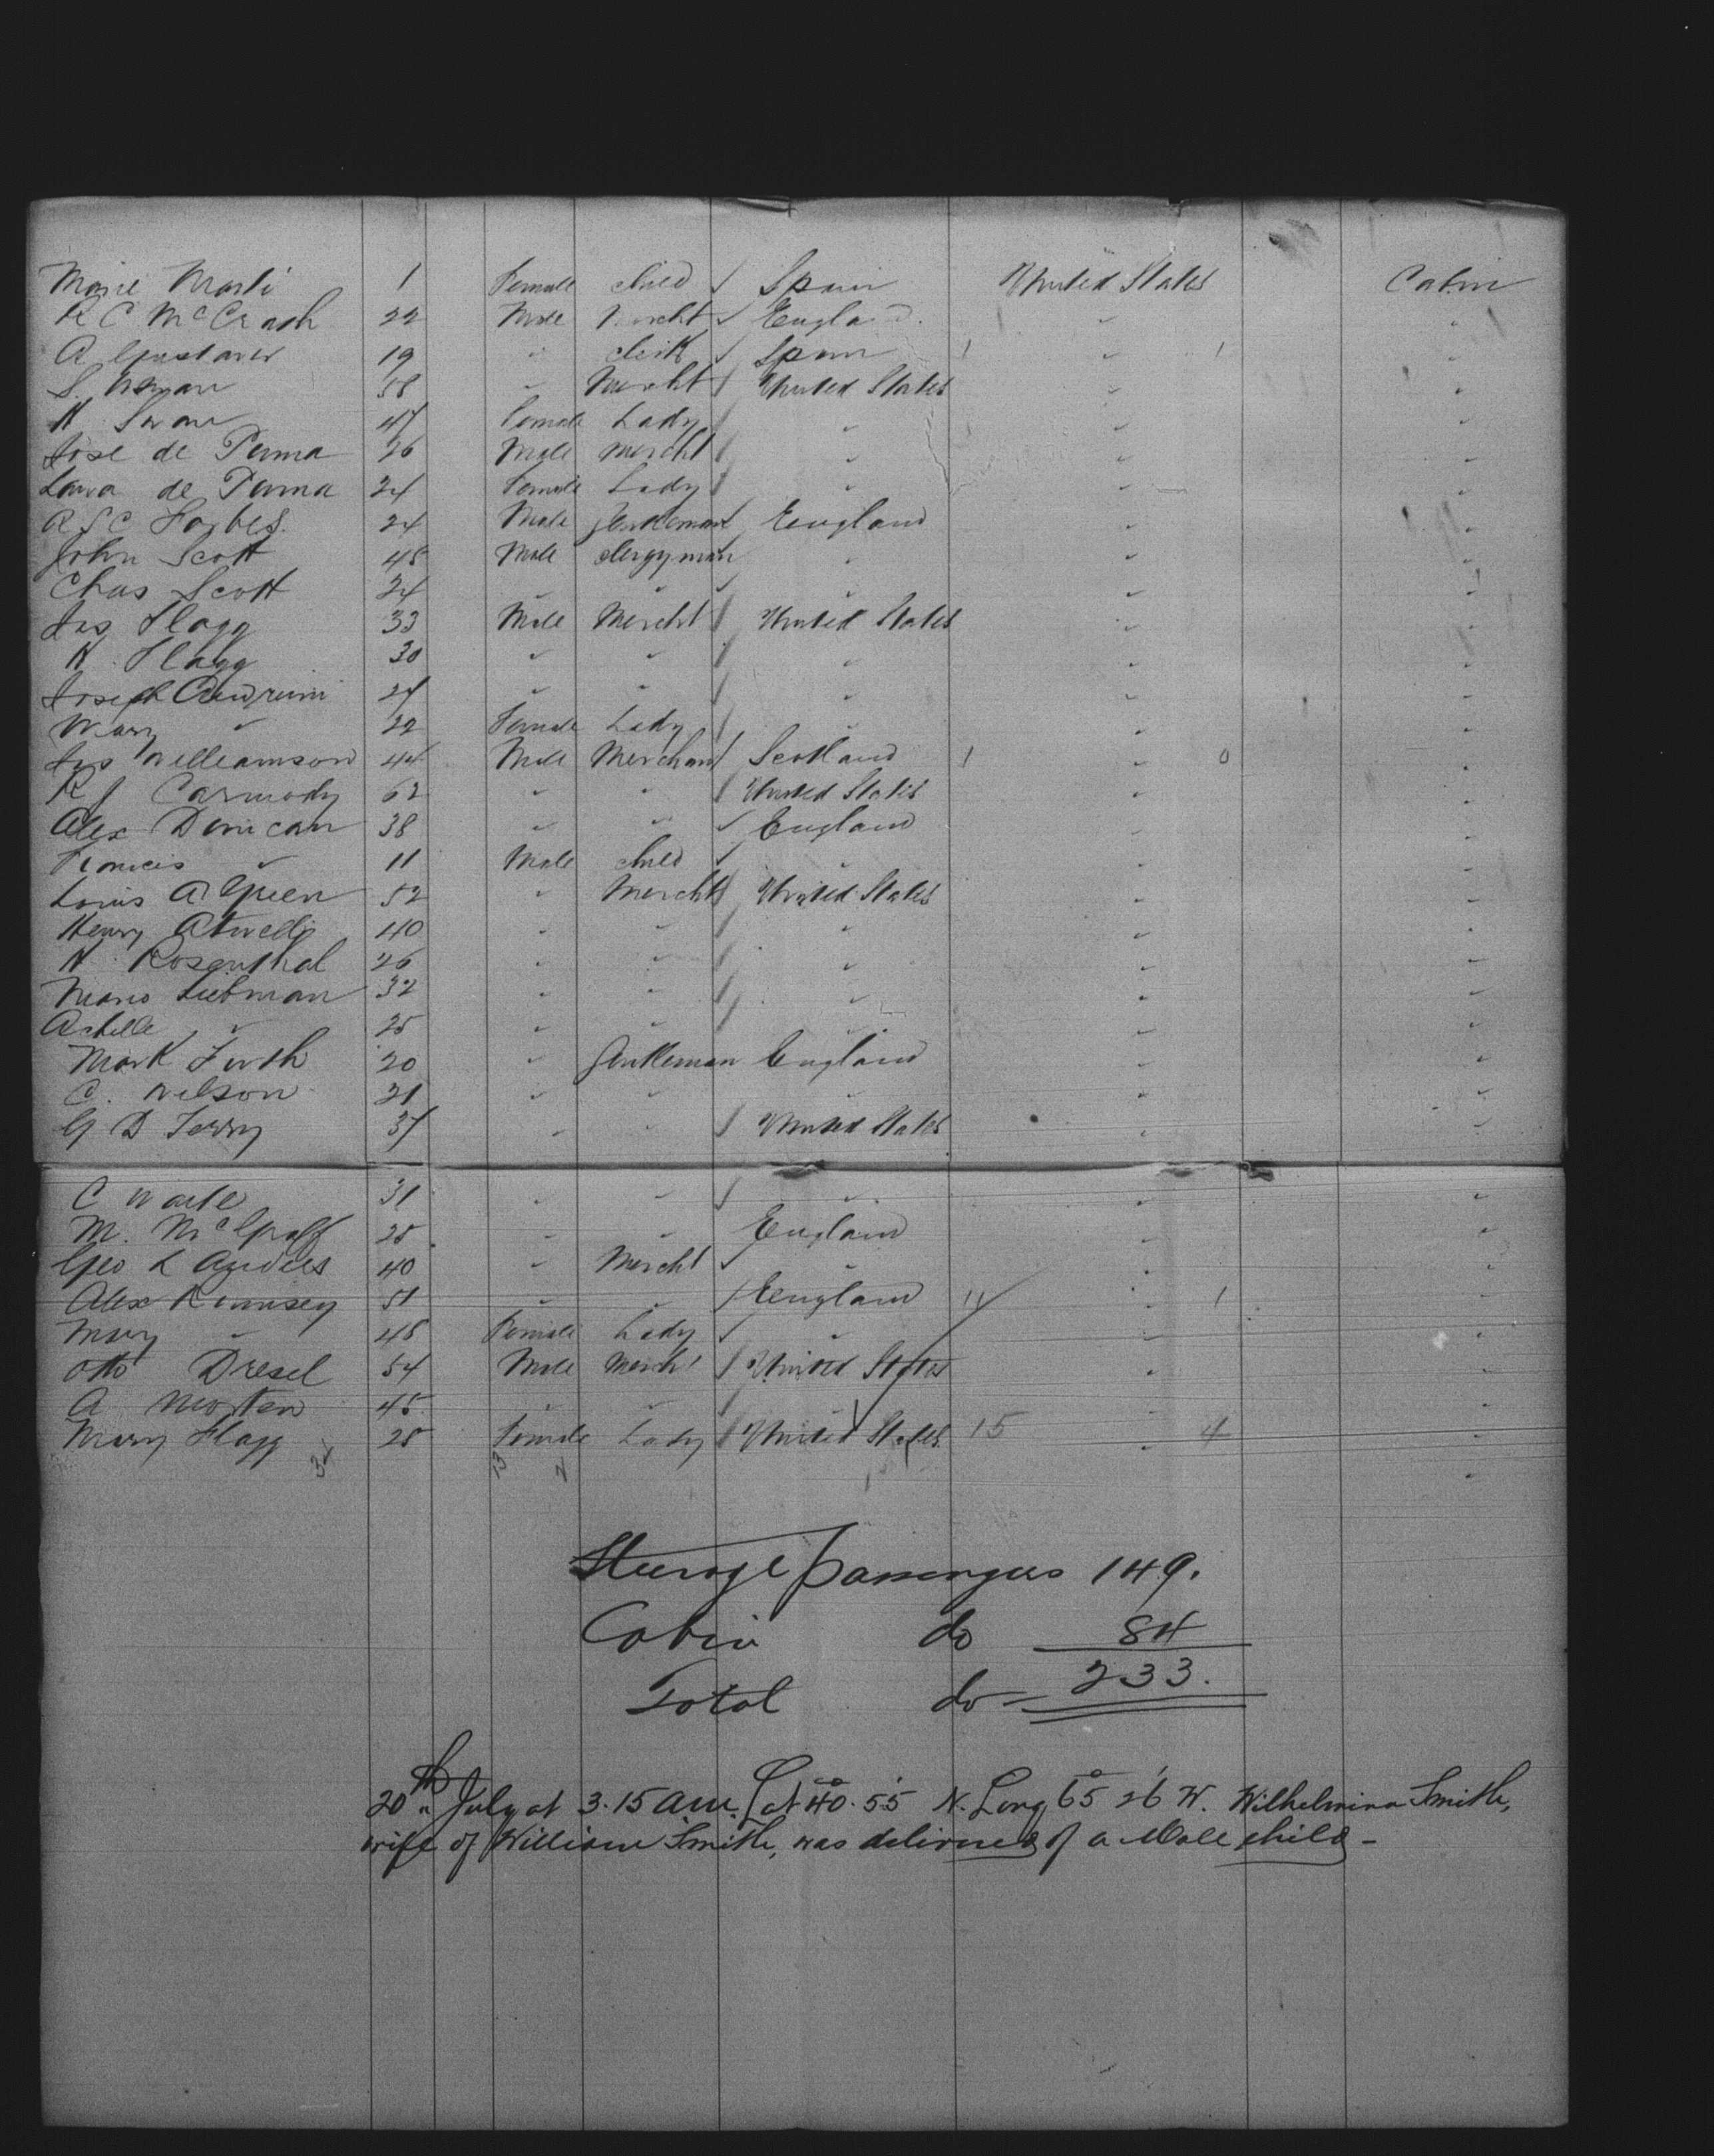 Marie Marti 1 Female child Spain United States Cabin
R C McCrash 22 Male Mercht England "
A 19 " clerk Spain 1 " 1 "
S. 58 " Mercht United States " "
H Swan 47 Female Lady " " "
Jose de Perma 26 Male Mercht " " "
Laura de Perma 24 Female Lady " " "
R S C Forbes. 24 Male Gentleman England " "
John Scott 48 Male Clergyman " " "
Chas Scott 24 " " " " "
Jas Flagg 33 Male Mercht United States " "
H. Flagg 30 " " " " "
Joseph 24 " " " " "
Mary " 22 Female Lady " " "
Jas Williamson 44 Male Merchant Scotland 1 " 0 "
R J Carmody 62 " " United States " "
Alex Duncan 38 " " England " "
Francis " 11 Male child " " "
Louis A Green 52 " Mercht United States " "
Henry Atwell 40 " " " " "
H Rosenthal 26 " " " " "
Liebman 32 " " " " "
Achille " 25 " " " " "
Mark Firth 20 " Gentleman England " "
C. Wilson 21 " " " " "
G D Terry 37 " " United States " "
C Waite 31 " " " " "
M. McGraff 25 " " England " "
Geo L 40 " Mercht " " "
Alex Rumsey 51 " " England 11 " 1 "
Mary " 48 Female Lady " " "
Otto Dresel 54 Male Mercht United States " "
A Morten 45 " " " " "
Mary Flagg 28 Female Lady United States 15 " 4 "
Steerage passengers 149.
Cabin do 84
Total do 233.
20th July at 3.15 am. Lat 40° 55' N. Long 65° 26' W. Wilhelmina Smith,
wife of William Smith, was delivered of a Male child -